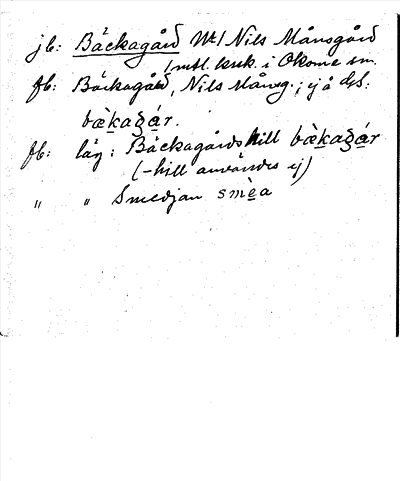 jb: Bäckagård Nr 1 Nils Månsgård
1 mtl. kuk. i Okome sn.
fb: Bäckagård, Nils Månsg.; ej å dss:
bæ̀kaʒár.
fb: läg: Bäckagårds hill bæ̀kaʒár
(-hill användes ej)
" " Smedjan smèa